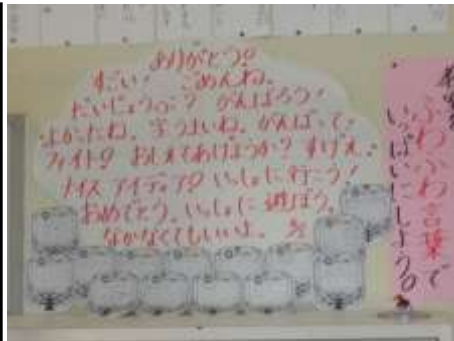 ありがとう!
すごい! ごめんね。
だいじょうぶ? がんばろう!
よかったね。 がんばって!
ファイト! おしえてあげようか? すげえ。
ナイス アイディア! いっしょに行こう!
おめでとう。 いっしょに遊ぼう。
なかなくてもいいよ。
ふわふわ言葉で
いっぱいにしよう。